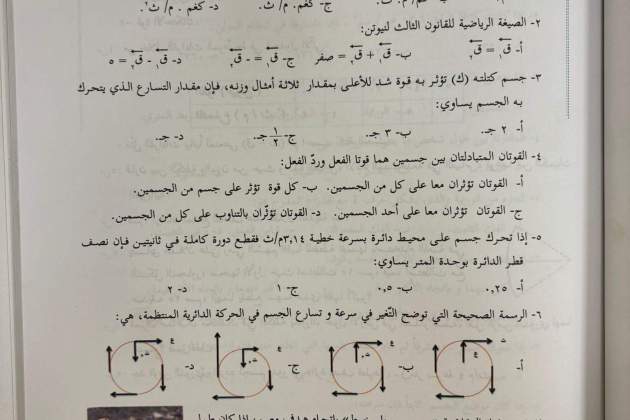 ج- كغم. م/ ث. د- كغم . م/ ث².
٢- الصيغة الرياضية للقانون الثالث لنيوتن:
أ- ق١ = ق٢ ب- ق١ + ق٢ = صفر ج- ق١ = - ق٢ د- ق١ - ق٢ = ٥
٣- جسم كتلته (ك) تؤثر به قوة شد للأعلى بمقدار ثلاثة أمثال وزنه، فإن مقدار التسارع الذي يتحرك
به الجسم يساوي:
أ- ٢ جـ ب- ٣ جـ. ج- ١/٢ جـ. د- جـ.
٤- القوتان المتبادلتان بين جسمين هما قوتا الفعل وردّ الفعل:
أ- القوتان تؤثران معا على كل من الجسمين. ب- كل قوة تؤثر على جسم من الجسمين.
ج- القوتان تؤثران معا على أحد الجسمين. د- القوتان تؤثّران بالتناوب على كل من الجسمين.
٥- إذا تحرك جسم على محيط دائرة بسرعة خطية ٣,١٤م/ث فقطع دورة كاملة في ثانيتين فإن نصف
قطر الدائرة بوحدة المتر يساوي:
أ- ٠,٢٥ ب- ٠,٥ ج- ١ د- ٢
٦- الرسمة الصحيحة التي توضح التّغير في سرعة و تسارع الجسم في الحركة الدائرية المنتظمة، هي:
أ- ب- ج- د-